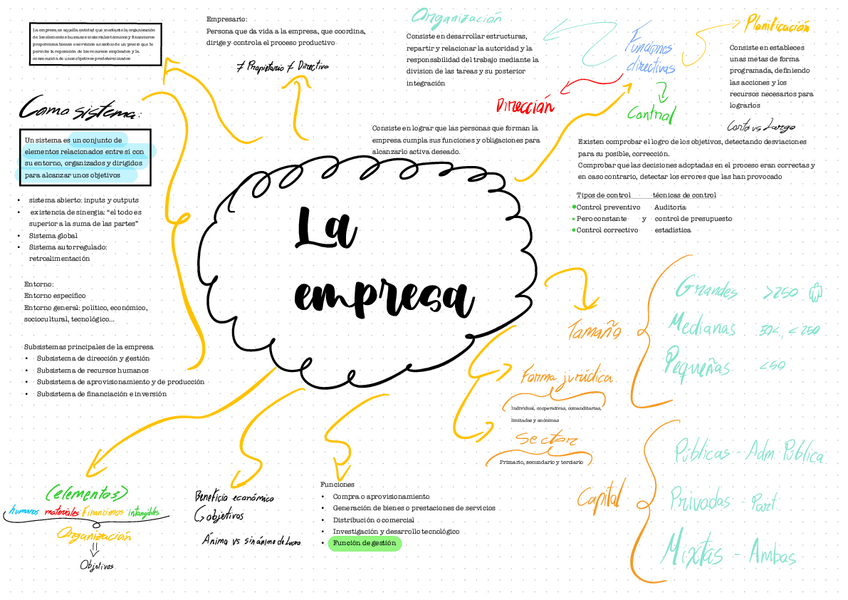 La empresa
Empresario:
Persona que da vida a la empresa, que coordina,
dirige y controla el proceso productivo
≠ Propietario ≠ Directivo
Como sistema:
Un sistema es un conjunto de
elementos relacionados entre sí con
su entorno, organizados y dirigidos
para alcanzar unos objetivos
• sistema abierto: inputs y outputs
• existencia de sinergia: “el todo es
superior a la suma de las partes”
• Sistema global
• Sistema autorregulado:
retroalimentación
Entorno:
Entorno específico
Entorno general: político, económico,
sociocultural, tecnológico...
Subsistemas principales de la empresa
• Subsistema de dirección y gestión
• Subsistema de recursos humanos
• Subsistema de aprovisionamiento y de producción
• Subsistema de financiación e inversión
(elementos)
humanos materiales financieros intangibles
Organización
Objetivos
Beneficio económico
objetivos
Ánimo vs sin ánimo de lucro
Funciones
• Compra o aprovisionamiento
• Generación de bienes o prestaciones de servicios
• Distribución o comercial
• Investigación y desarrollo tecnológico
• Función de gestión
Funciones
directivas
Organización
Consiste en desarrollar estructuras,
repartir y relacionar la autoridad y la
responsabilidad del trabajo mediante la
division de las tareas y su posterior
integración
Dirección
Consiste en lograr que las personas que forman la
empresa cumpla sus funciones y obligaciones para
alcanzarlo activa deseado.
Planificación
Consiste en estableces
unas metas de forma
programada, definiendo
las acciones y los
recursos necesarios para
lograrlos
Corto vs Largo
Control
Existen comprobar el logro de los objetivos, detectando desviaciones
para su posible, corrección.
Comprobar que las decisiones adoptadas en el proceso eran correctas y
en caso contrario, detectar los errores que las han provocado
Tipos de control técnicas de control
Control preventivo Auditoria
Pero constante y control de presupuesto
Control correctivo estadística
Tamaño
Grandes >250
Medianas
Pequeñas <50
Forma jurídica
Individual, cooperativas, comanditarias,
limitadas y anónimas
Sector
Primario, secundario y terciario
Capital
Públicas - Adm Pública
Privadas - Part
Mixtas - Ambas